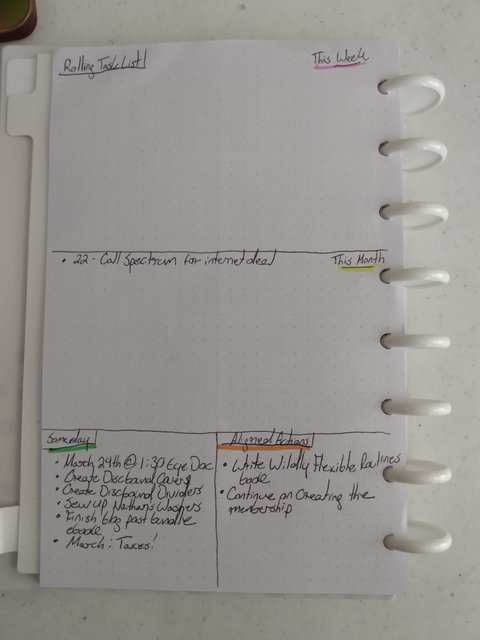 Rolling Task List
This Week
• 22 - Call Spectrum for internet deal
This Month
Someday
• March 24th @ 1:30 Eye Doc
• Create Discbound Covers
• Create Discbound Dividers
• Sew up Nathan's Washers
• Finish blog post bundle
ebook
• March: Taxes!
Aligned Actions
• Write Wildly Flexible Routines
book
• Continue on Creating the
membership